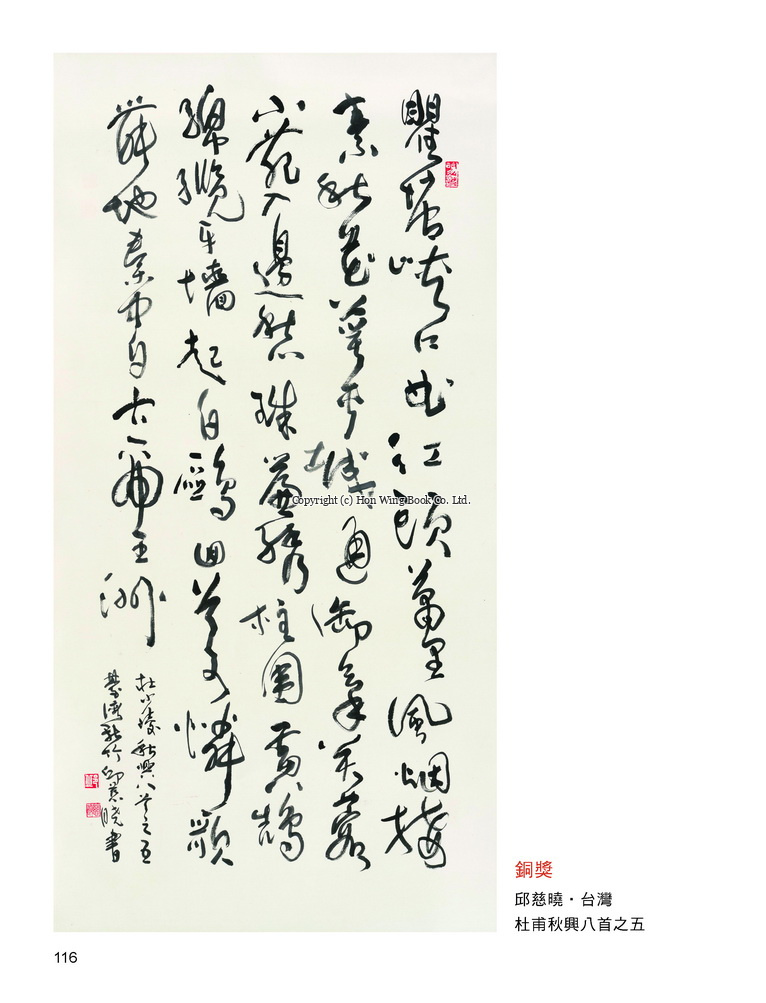 瞿塘峽口曲江頭萬里風烟接
素秋花萼夾城通御氣芙蓉
小苑入邊愁珠簾繡柱圍黃鵠
錦纜牙墻起白鷗回首可憐歌
舞地秦中自古帝王洲
杜少陵秋興八首之五
臺灣新竹邱慈曉書
Copyright (c) Hon Wing Book Co. Ltd.
銅獎
邱慈曉・台灣
杜甫秋興八首之五
116